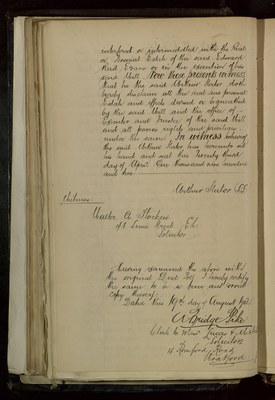 interfered or intermeddled with the Real
or Personal Estate of the said Edward
Reid Evans or in the execution of his
said Will Now these presents witness
that he the said Arthur Huber doth
hereby disclaim all the real and personal
Estate and effects devised or bequeathed
by the said Will and the office of
Executor and Trustee of the said Will
and all powers rights and privileges
under the same In witness whereof
the said Arthur Huber has hereunto set
his hand and seal this twenty third
day of April One thousand nine hundred
and two.
Arthur Huber LS
Witness
Walter A
Lime Street E.C.
Solicitor
Having examined the above with
the original Deed Poll I hereby certify
the same to be a true and correct
copy thereof.
Dated this 19th day of August 1902
A Bridge
Clerk to Messrs
Solicitors
Romford Road